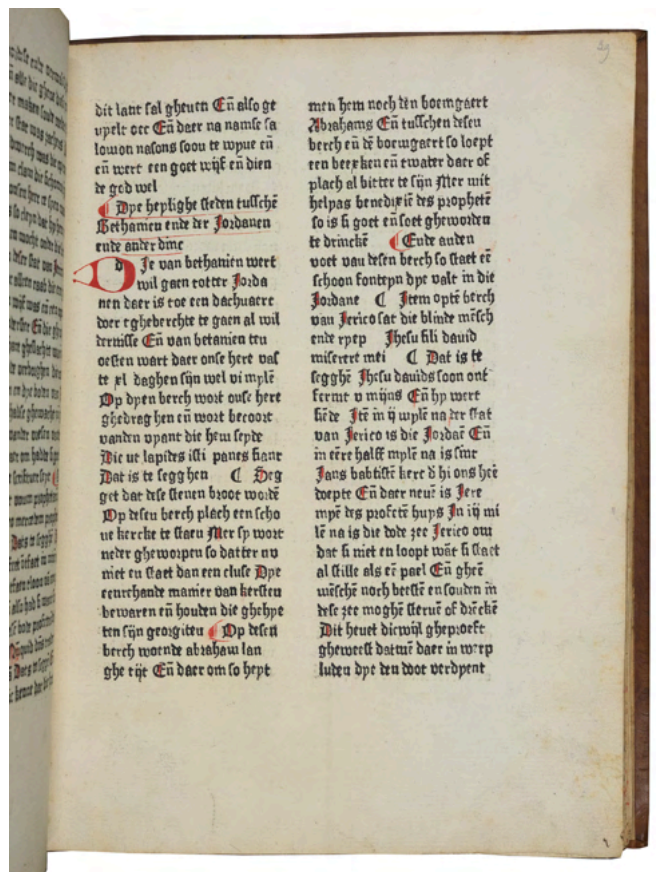 dit lant sal gheuen Eñ also ge
upelt oec Eñ daer na namse sa
lomon nasons soou te wpue eñ
eñ wert een goet wijf eñ dien
de god wel
¶ Dpe heplighe steden tusschē
Bethanien ende der Jordanen
ende ander dine
D d Je van bethanien wert
wil gaen totter Jorda
nen daer is toe een dachuaert
doer tgheberchte te gaen al wil
dernisse Eñ van betanien teu
oesten wart daer onse here vas
te xl daghen sijn wel vi mplē
Op dpen berch wort onse here
ghedraghen eñ wort becoort
vanden vpant die hem sepde
Dic ut lapides isti panes fiant
Dat is te segghen ¶ Seg
get dat dese stenen broot wordē
Op desen berch plach een scho
ne kercke te staen Mer sp wort
neder gheworpen so datter nv
niet en staet dan een cluse Dpe
eenrehande manier van kersten
bewaren eñ houden die ghehpe
ten sijn georgiten ¶ Op desen
berch woende abraham lan
ghe tijt Eñ daer om so hept
men hem noch den boemgaert
Abrahams Eñ tusschen desen
berch eñ dē boemgaert so loept
een beexken eñ twater daer of
plach al bitter te sijn Mer mit
helpas benedixiē des prophetē
so is si goet eñ soet gheworden
te drinckē ¶ Ende anden
voet van desen berch so staet eē
schoon fontepn dpe valt in die
Jordane ¶ Item optē berch
van Jerico sat die blinde mēsch
ende rpep Jhesu fili dauid
miserere mei ¶ Dat is te
segghē Jhesu dauids soon ont
fermt v mijns Eñ hp wert
siēde Itē in ij wplē na der stat
van Jerico is die Jordaē Eñ
in eēre halft mplē na is sinr
Jans babtistē kerc d hi ons heē
doepte Eñ daer neuē is Jere
mpē des profetē hups In iij mi
lē na is die dode zee Jerico om
dat si niet en loopt wāt si staet
al stille als eē pael Eñ gheē
mēschē noch beestē en souden in
dese zee moghē steruē of drēckē
Dit heuet dicwijl gheproeft
gheweest datmē daer in werp
luden dpe den doot verdpent
29